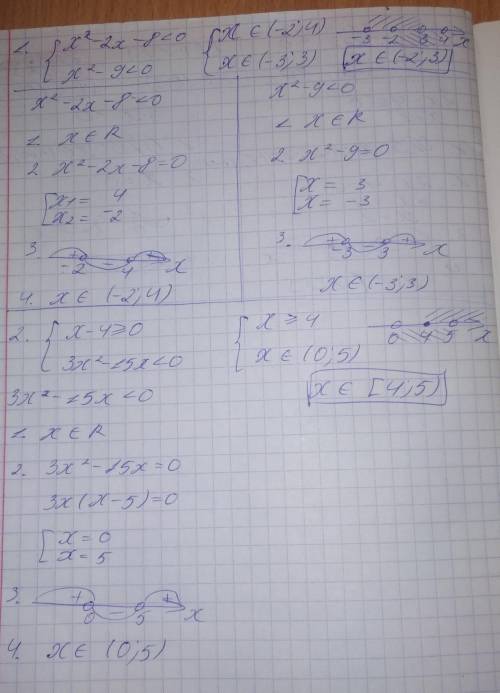 1. { x² - 2x - 8 < 0
x² - 9 < 0
{ x ∈ (-2; 4)
x ∈ (-3; 3)
-3 -2 3 4 x
x ∈ (-2; 3)
x² - 2x - 8 < 0
1. x ∈ R
2. x² - 2x - 8 = 0
[ x1 = 4
x2 = -2
3. + - +
-2 4 x
4. x ∈ (-2; 4)
x² - 9 < 0
1. x ∈ R
2. x² - 9 = 0
[ x = 3
x = -3
3. + - +
-3 3 x
x ∈ (-3; 3)
2. { x - 4 ⩾ 0
3x² - 15x < 0
{ x ⩾ 4
x ∈ (0; 5)
0 4 5 x
x ∈ [4; 5)
3x² - 15x < 0
1. x ∈ R
2. 3x² - 15x = 0
3x(x - 5) = 0
[ x = 0
x = 5
3. + - +
0 5 x
4. x ∈ (0; 5)